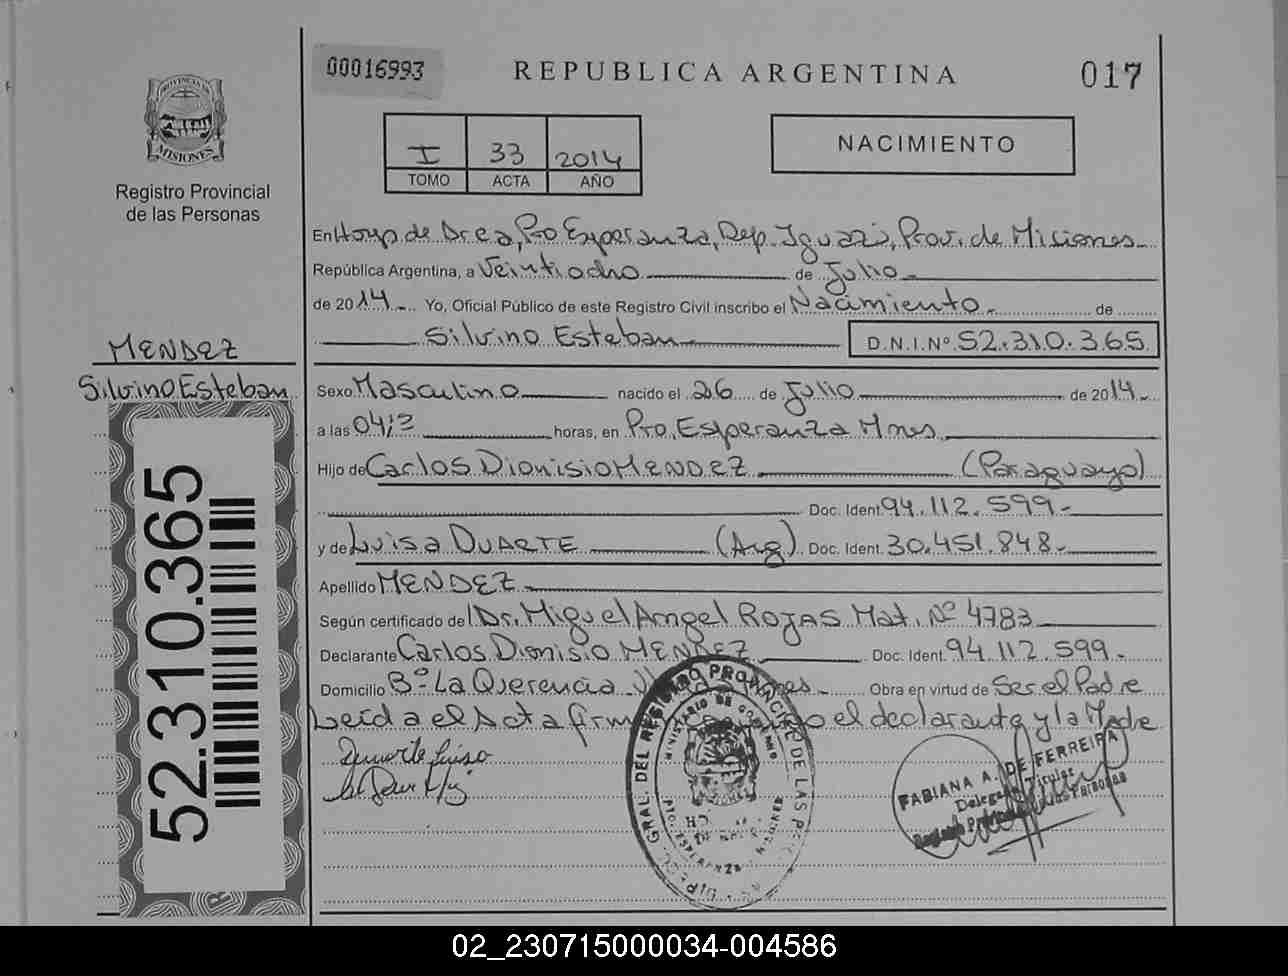 00016993
REPUBLICA ARGENTINA
017
PROVINCIA DE
MISIONES
Registro Provincial
de las Personas
I 33 2014
TOMO ACTA AÑO
NACIMIENTO
En Hosp de Area, Pto Esperanza, Dep. Iguazú, Prov. de Misiones
República Argentina, a Veintiocho de Julio
de 2014 Yo, Oficial Público de este Registro Civil inscribo el Nacimiento de
Silvino Esteban D.N.I.Nº 52.310.365
MENDEZ
Silvino Esteban
Sexo Masculino nacido el 26 de Julio de 2014
a las 04: horas, en Pto. Esperanza Mnes
Hijo de Carlos Dionisio MENDEZ (Paraguayo)
Doc. Ident. 94.112.599
y de Luisa DUARTE (Arg) Doc. Ident. 30.451.848
Apellido MENDEZ
Según certificado del Dr. Miguel Angel ROJAS Mat. Nº 4783
Declarante Carlos Dionisio MENDEZ Doc. Ident. 94.112.599
Domicilio Bº La Querencia Obra en virtud de Ser el Padre
Leída el Acta el declarante y la Madre
Duarte Luisa
DEL REGISTRO PROVINCIAL DE LAS
MINISTERIO DE GOBIERNO
PTO. ESPERANZA - MISIONES
FABIANA A. DE FERREIRA
Delegada Titular
52.310.365
02_230715000034-004586